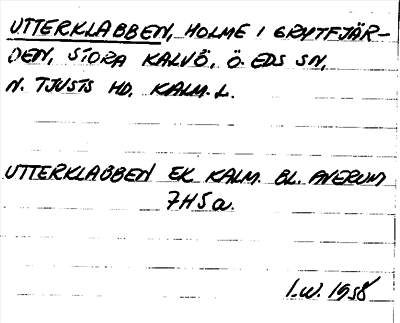 UTTERKLABBEN, HOLME I GRYTFJÄR-
DEN, STORA KALVÖ, Ö. EDS SN,
N. TJUSTS HD, KALM. L.
UTTERKLABBEN EK KALM. BL. AVERUM
7H5a.
I.W. 1958